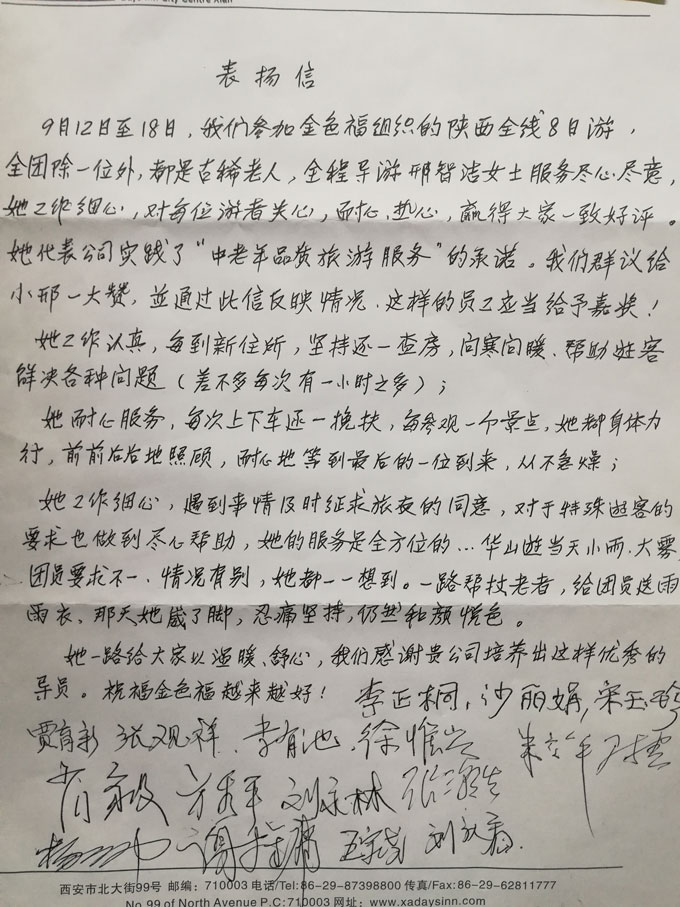 表扬信
9月12日至18日，我们参加金色福组织的陕西全线8日游，
全团除一位外，都是古稀老人，全程导游邢智洁女士服务尽心尽意，
她工作细心，对每位游者关心，耐心、热心，赢得大家一致好评。
她代表公司实践了“中老年品质旅游服务”的承诺。我们群议给
小邢一大赞，並通过此信反映情况.这样的员工应当给予嘉奖！
她工作认真，每到新住所，坚持逐一查房，问寒问暖、帮助游客
解决各种问题（差不多每次有一小时之多）；
她耐心服务，每次上下车逐一搀扶，每参观一个景点，她都身体力
行，前前后后地照顾，耐心地等到最后的一位到来，从不急燥；
她工作细心，遇到事情及时征求旅友的同意，对于特殊遊客的
要求也做到尽心帮助，她的服务是全方位的...华山遊当天小雨、大雾，
团员要求不一、情况有别，她都一一想到。一路帮扶老者，给团员送雨
雨衣、那天她崴了脚，忍痛坚持，仍然和颜悦色。
她一路给大家以温暖、舒心，我们感谢贵公司培养出这样优秀的
导员。祝福金色福越来越好！李正桐，沙丽娟，宋玉玲
贾育新 张观祥、李有池、徐惟兴
肖家毅 方秀平 刘永林
西安市北大街99号 邮编：710003 电话/Tel:86-29-87398800 传真/Fax:86-29-62811777
No.99 of North Avenue P.C:710003 网址：www.xadaysinn.com